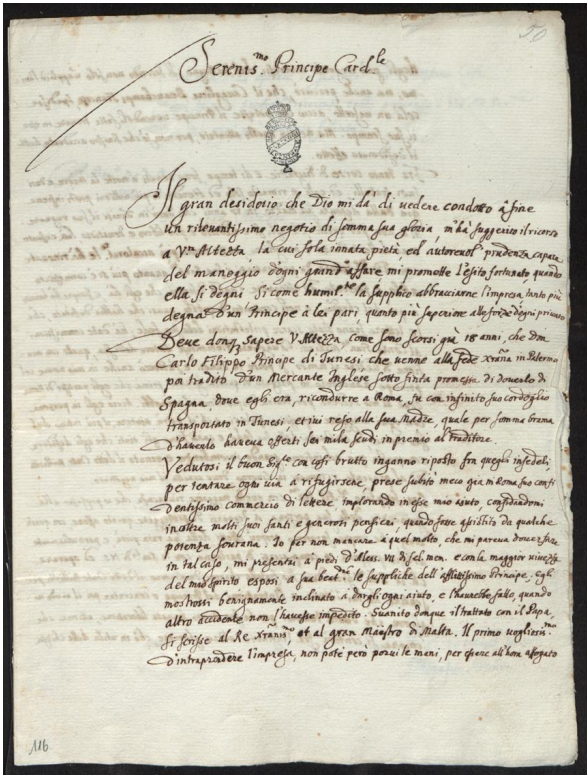 50
Serenis.mo Principe Card.le
Il gran desiderio che Dio mi dà di vedere condotto à fine
un rilevantissimo negotio di somma sua gloria, m'hà suggerito il ricorso
a V.ra Altezza, la cui sola innata pietà, ed autorevol prudenza capace
del maneggio d'ogni grand'affare mi promette l'esito fortunato, quando
ella si degni si come humil.te la supplico abbracciarne l'impresa, tanto più
degna d'un Principe à lei pari, quanto più superiore alle forze d'ogni privato
Deve donq; sapere V Altezza come sono scorsi già 18 anni, che Dom
Carlo Filippo Principe di Tunesi che venne alla fede Xrãna in Palermo
poi tradito d'un Mercante Inglese sotto finta promessa di doverlo di
Spagna, dove egli era, ricondurre a Roma, fu con infinito suo cordoglio
transportato in Tunesi, et ivi reso alla sua Madre, quale per somma brama
d'haverlo haveva offerti sei mila scudi in premio al traditore.
Vedutosi il buon con così brutto inganno riposto frà quegli infedeli,
per tentare ogni via à rifugirsene, prese subito meco già in Roma suo confi
dentissimo commercio di lettere implorando in esse mio aiuto confidandomi
inoltre molti suoi santi e generosi pensieri, quando fosse assistito da qualche
potenza sourana. Io per non mancare à quel molto, che mi pareva dover fare
in tal caso, mi presentai à piedi d'Aless. VII di fel. mem. e con la maggior vivezza
del mio spirito esposi a sua beat.ne le suppliche dell'afflittissimo Principe, egli
mostrossi benignamente inclinato à dargli ogni aiuto, e l'haurebbe fatto, quando
altro accidente non l'havesse impedito. Suanito donque il trattato con il Papa,
si scrisse al Re Xrãnis.mo et al gran Maestro di Malta. Il primo voglioris.mo
d'intraprendere l'impresa, non potè però porui le mani, per essere all'hora affogato
116